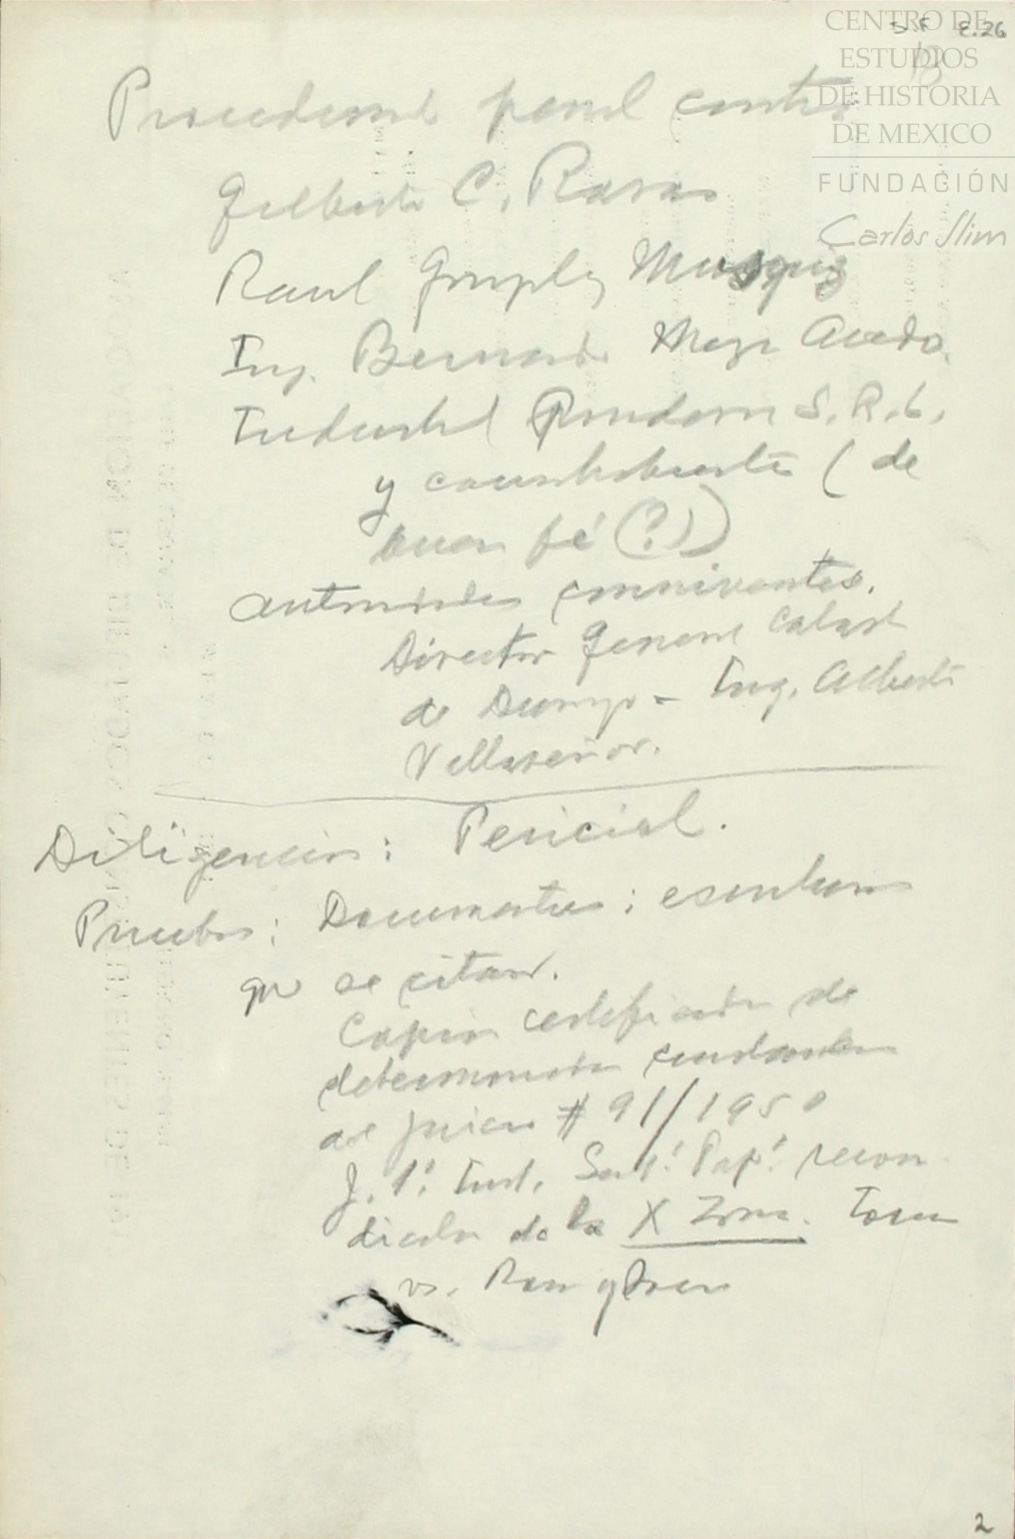 CENTRO DE
ESTUDIOS
DE HISTORIA
DE MEXICO
FUNDACIÓN
Carlos Slim
penal contra
Gilberto C. Rosas
Raul Gonzalez Musquiz
Ing. Bernardo Acedo.
Industrial S. R. L.
y causahabiente (de
buena fé (?))
autoridades conniventes.
Director General Catast
de Durango - Ing. Alberto
Villaseñor.
Diligencias: Pericial.
Pruebas: Documentales: escrituras
que se citan.
Copia certificada de
determinadas constancias
de juicio # 91/1950
J. 1º. Inst. Prop.
de la X Zona.
vs.
2